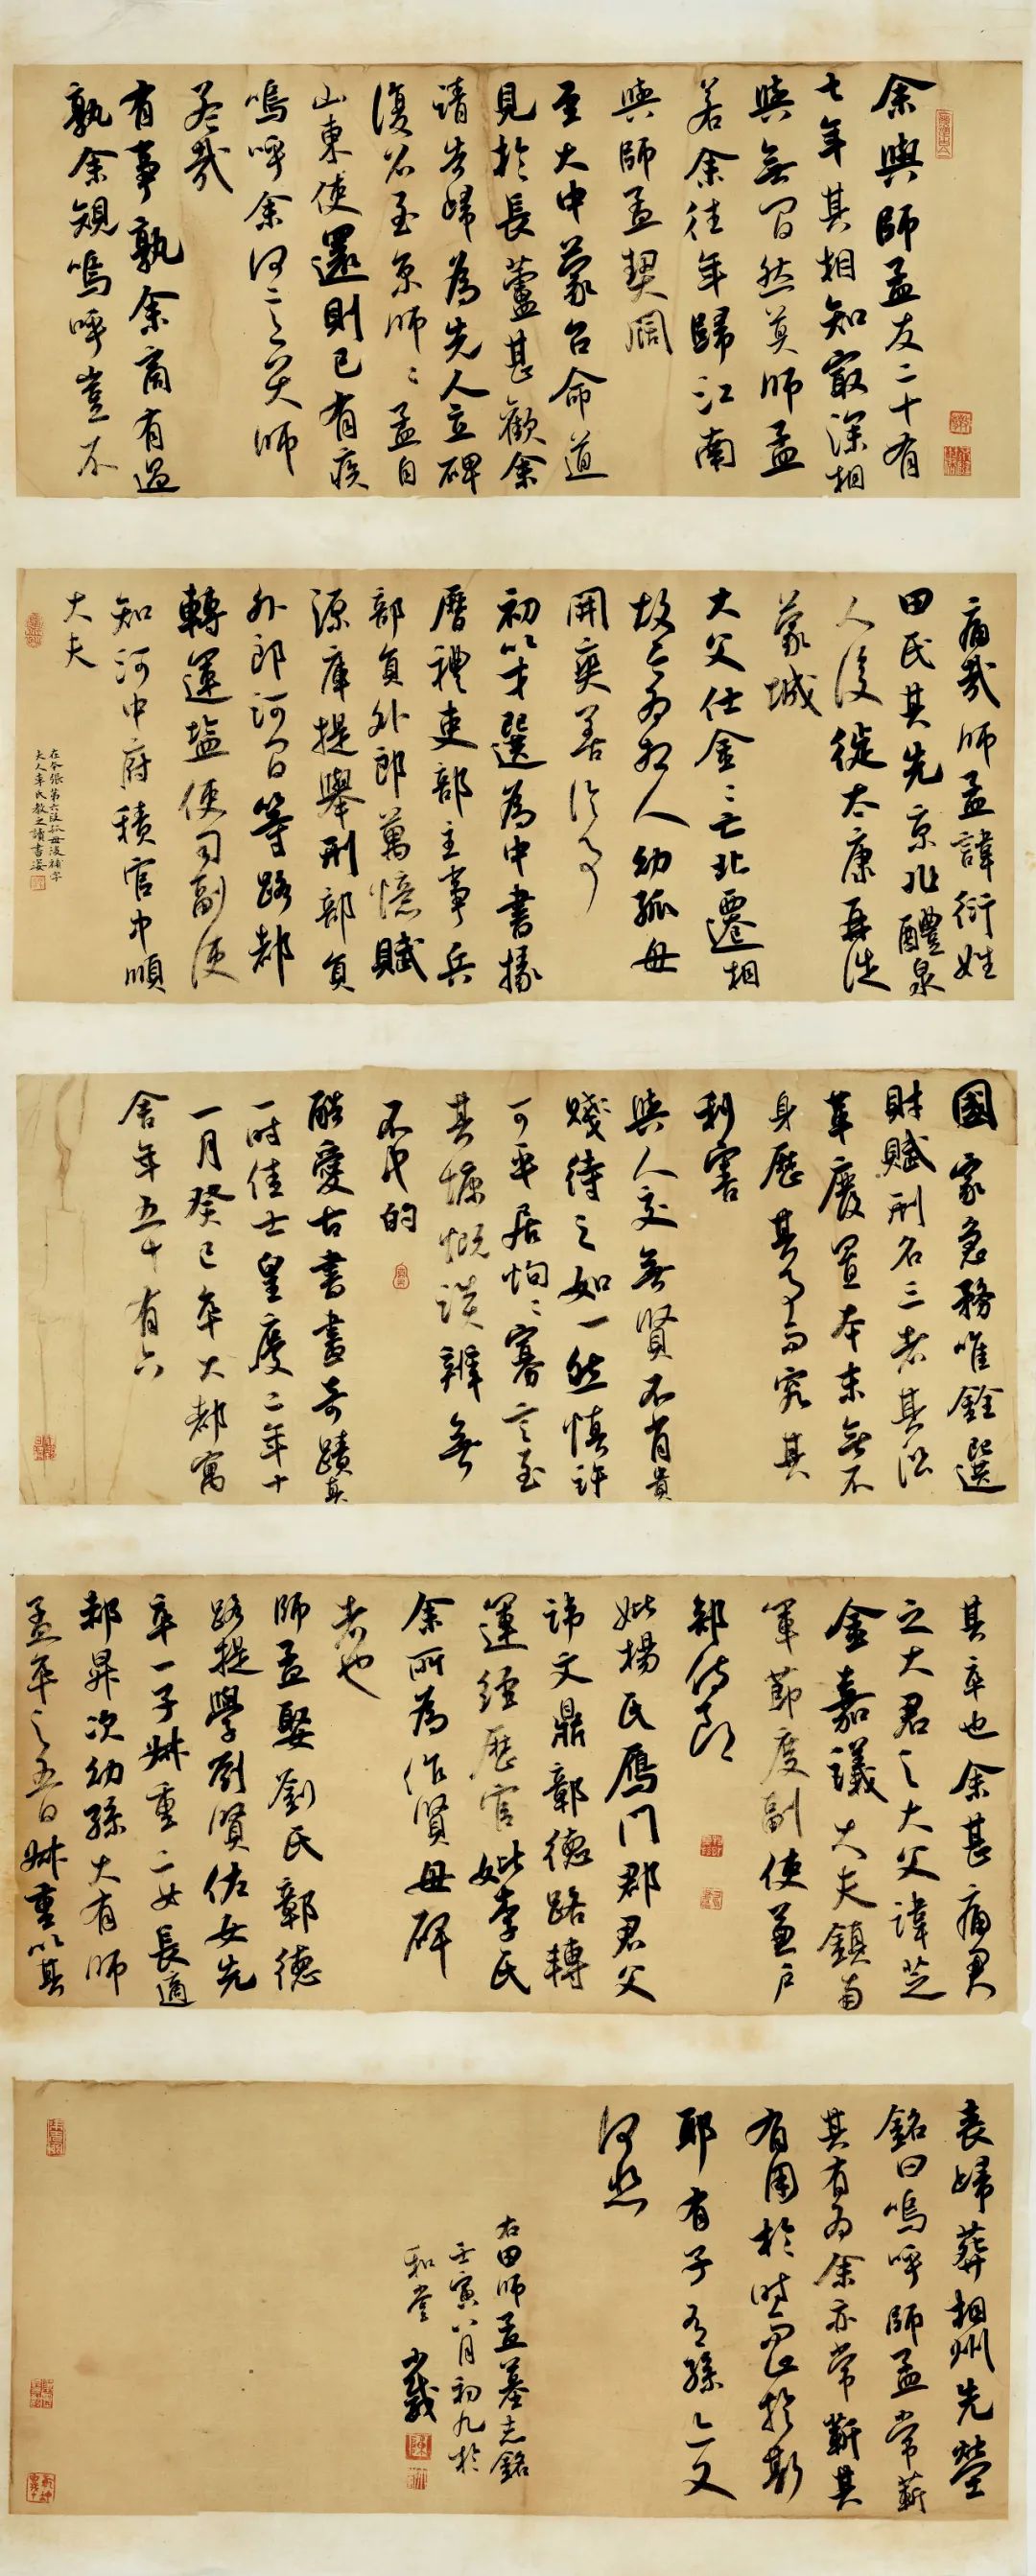 余與師孟友二十有
七年其相知最深相
與無間然莫師孟
若余往年歸江南
與師孟契闊
至大中蒙召命道
見於長蘆甚歡余
請告歸為先人立碑
復召至京師師孟自
山東使還則已有疾
嗚呼余何言哉師
孟哉
有事孰余商有過
孰余規嗚呼豈不
痛哉師孟諱衍姓
田氏其先京兆醴泉
人後徙太康再徙
蒙城
大父仕金金亡北遷相
故今為相人幼孤母
開爽善
初以才選為中書掾
曆禮吏部主事兵
部員外郎萬億賦
源庫提舉刑部員
外郎河間等路都
轉運鹽使司副使
知河中府積官中順
大夫
在本張第六段孤母後補李
夫人李氏教之讀書姿
國家急務唯銓選
財賦刑名三者其沿
革廢置本末無不
身歷其事而究其
利害
與人交無賢不肖貴
賤待之如一然慎許
可平居恂恂寡言至
其慷慨談辯無
不中的
酷愛古書畫奇蹟真
一時佳士皇慶二年十
一月癸巳卒大都寓
舍年五十有六
其卒也余甚痛君
之大君之大父諱芝
金嘉議大夫鎮南
軍節度副使兼戶
部侍郎
妣楊氏雁門郡君父
諱文鼎彰德路轉
運經歷官妣李氏
余所為作賢母碑
者也
師孟娶劉氏彰德
路提學劉賢佐女先
卒一子妹重二女長適
郝昇次幼孫大有師
孟卒之五日妹重以其
喪歸葬相州先塋
銘曰嗚呼師孟常蘄
其有為余亦常蘄其
有用於時而止於斯
耶有子有孫文
何悲
右田師孟墓志銘
壬寅八月初九於
和堂